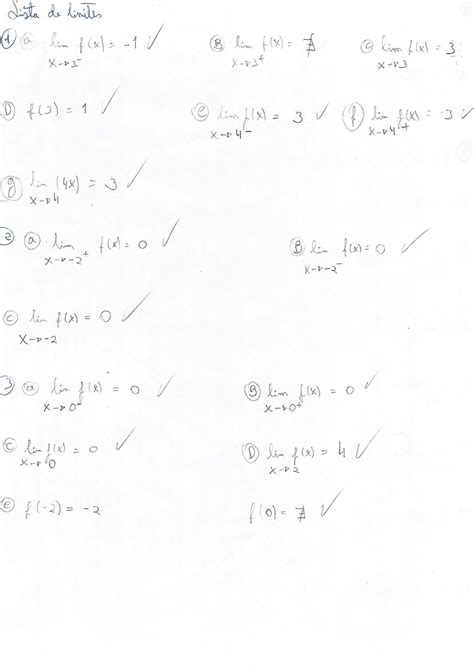 Lista de limites
1) a) lim x→3⁻ f(x) = -1 ✓ B) lim x→3⁺ f(x) = ∄ C) lim x→3 f(x) = 3
D) f(3) = 1 ✓ e) lim x→4⁻ f(x) = 3 ✓ f) lim x→4⁺ f(x) = 3 ✓
g) lim x→4 (4x) = 3 ✓
2) a) lim x→-2⁺ f(x) = 0 ✓ B) lim x→-2⁻ f(x) = 0 ✓
C) lim x→-2 f(x) = 0 ✓
3) a) lim x→0⁻ f(x) = 0 ✓ B) lim x→0⁺ f(x) = 0 ✓
C) lim x→0 f(x) = 0 ✓ D) lim x→2 f(x) = 4 ✓
e) f(-2) = -2 f(0) = ∄ ✓